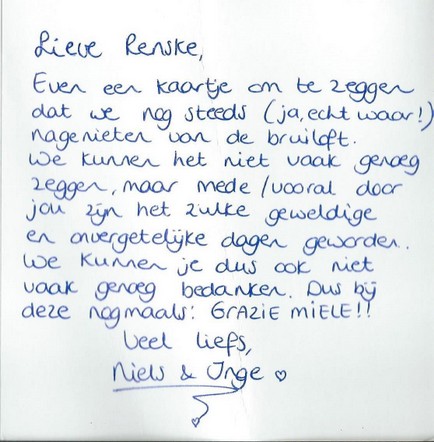 Lieve Renske,
Even een kaartje om te zeggen
dat we nog steeds (ja, echt waar!)
nagenieten van de bruiloft.
We kunnen het niet vaak genoeg
zeggen, maar mede/vooral door
jou zijn het zulke geweldige
en onvergetelijke dagen geworden.
We kunnen je dus ook niet
vaak genoeg bedanken. Dus bij
deze nogmaals: GRAZIE MIELE!!
Veel liefs,
Niels & Inge ♡